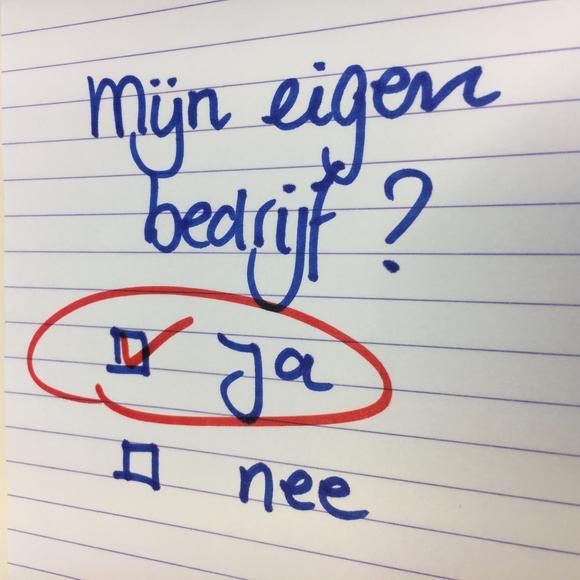 Mijn eigen
bedrijf?
Ja
nee